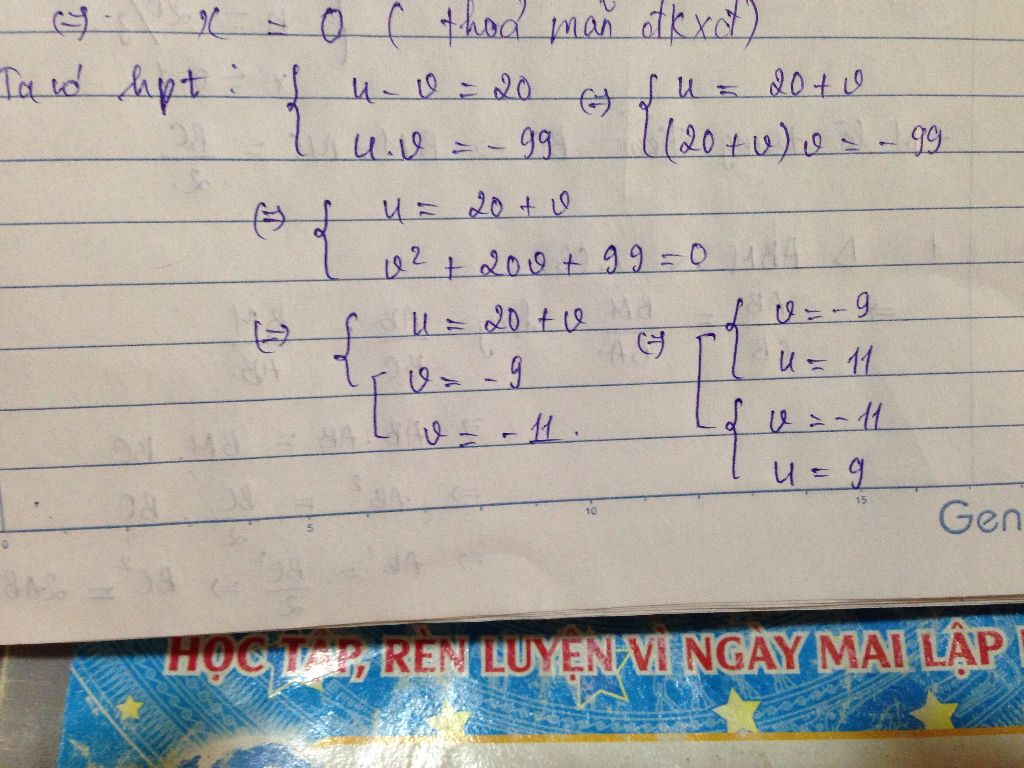 ⇔ x = 0 ( thoả mãn đkxđ)
Ta có hpt : { u - v = 20 ⇔ { u = 20 + v
u.v = - 99 (20 + v) v = - 99
⇔ { u = 20 + v
v² + 20v + 99 = 0
⇔ { u = 20 + v ⇔ [ { v = - 9
[ v = - 9 u = 11
v = - 11. { v = - 11
u = 9
0 5 10 15
Gen
HỌC TẬP, RÈN LUYỆN VÌ NGÀY MAI LẬP